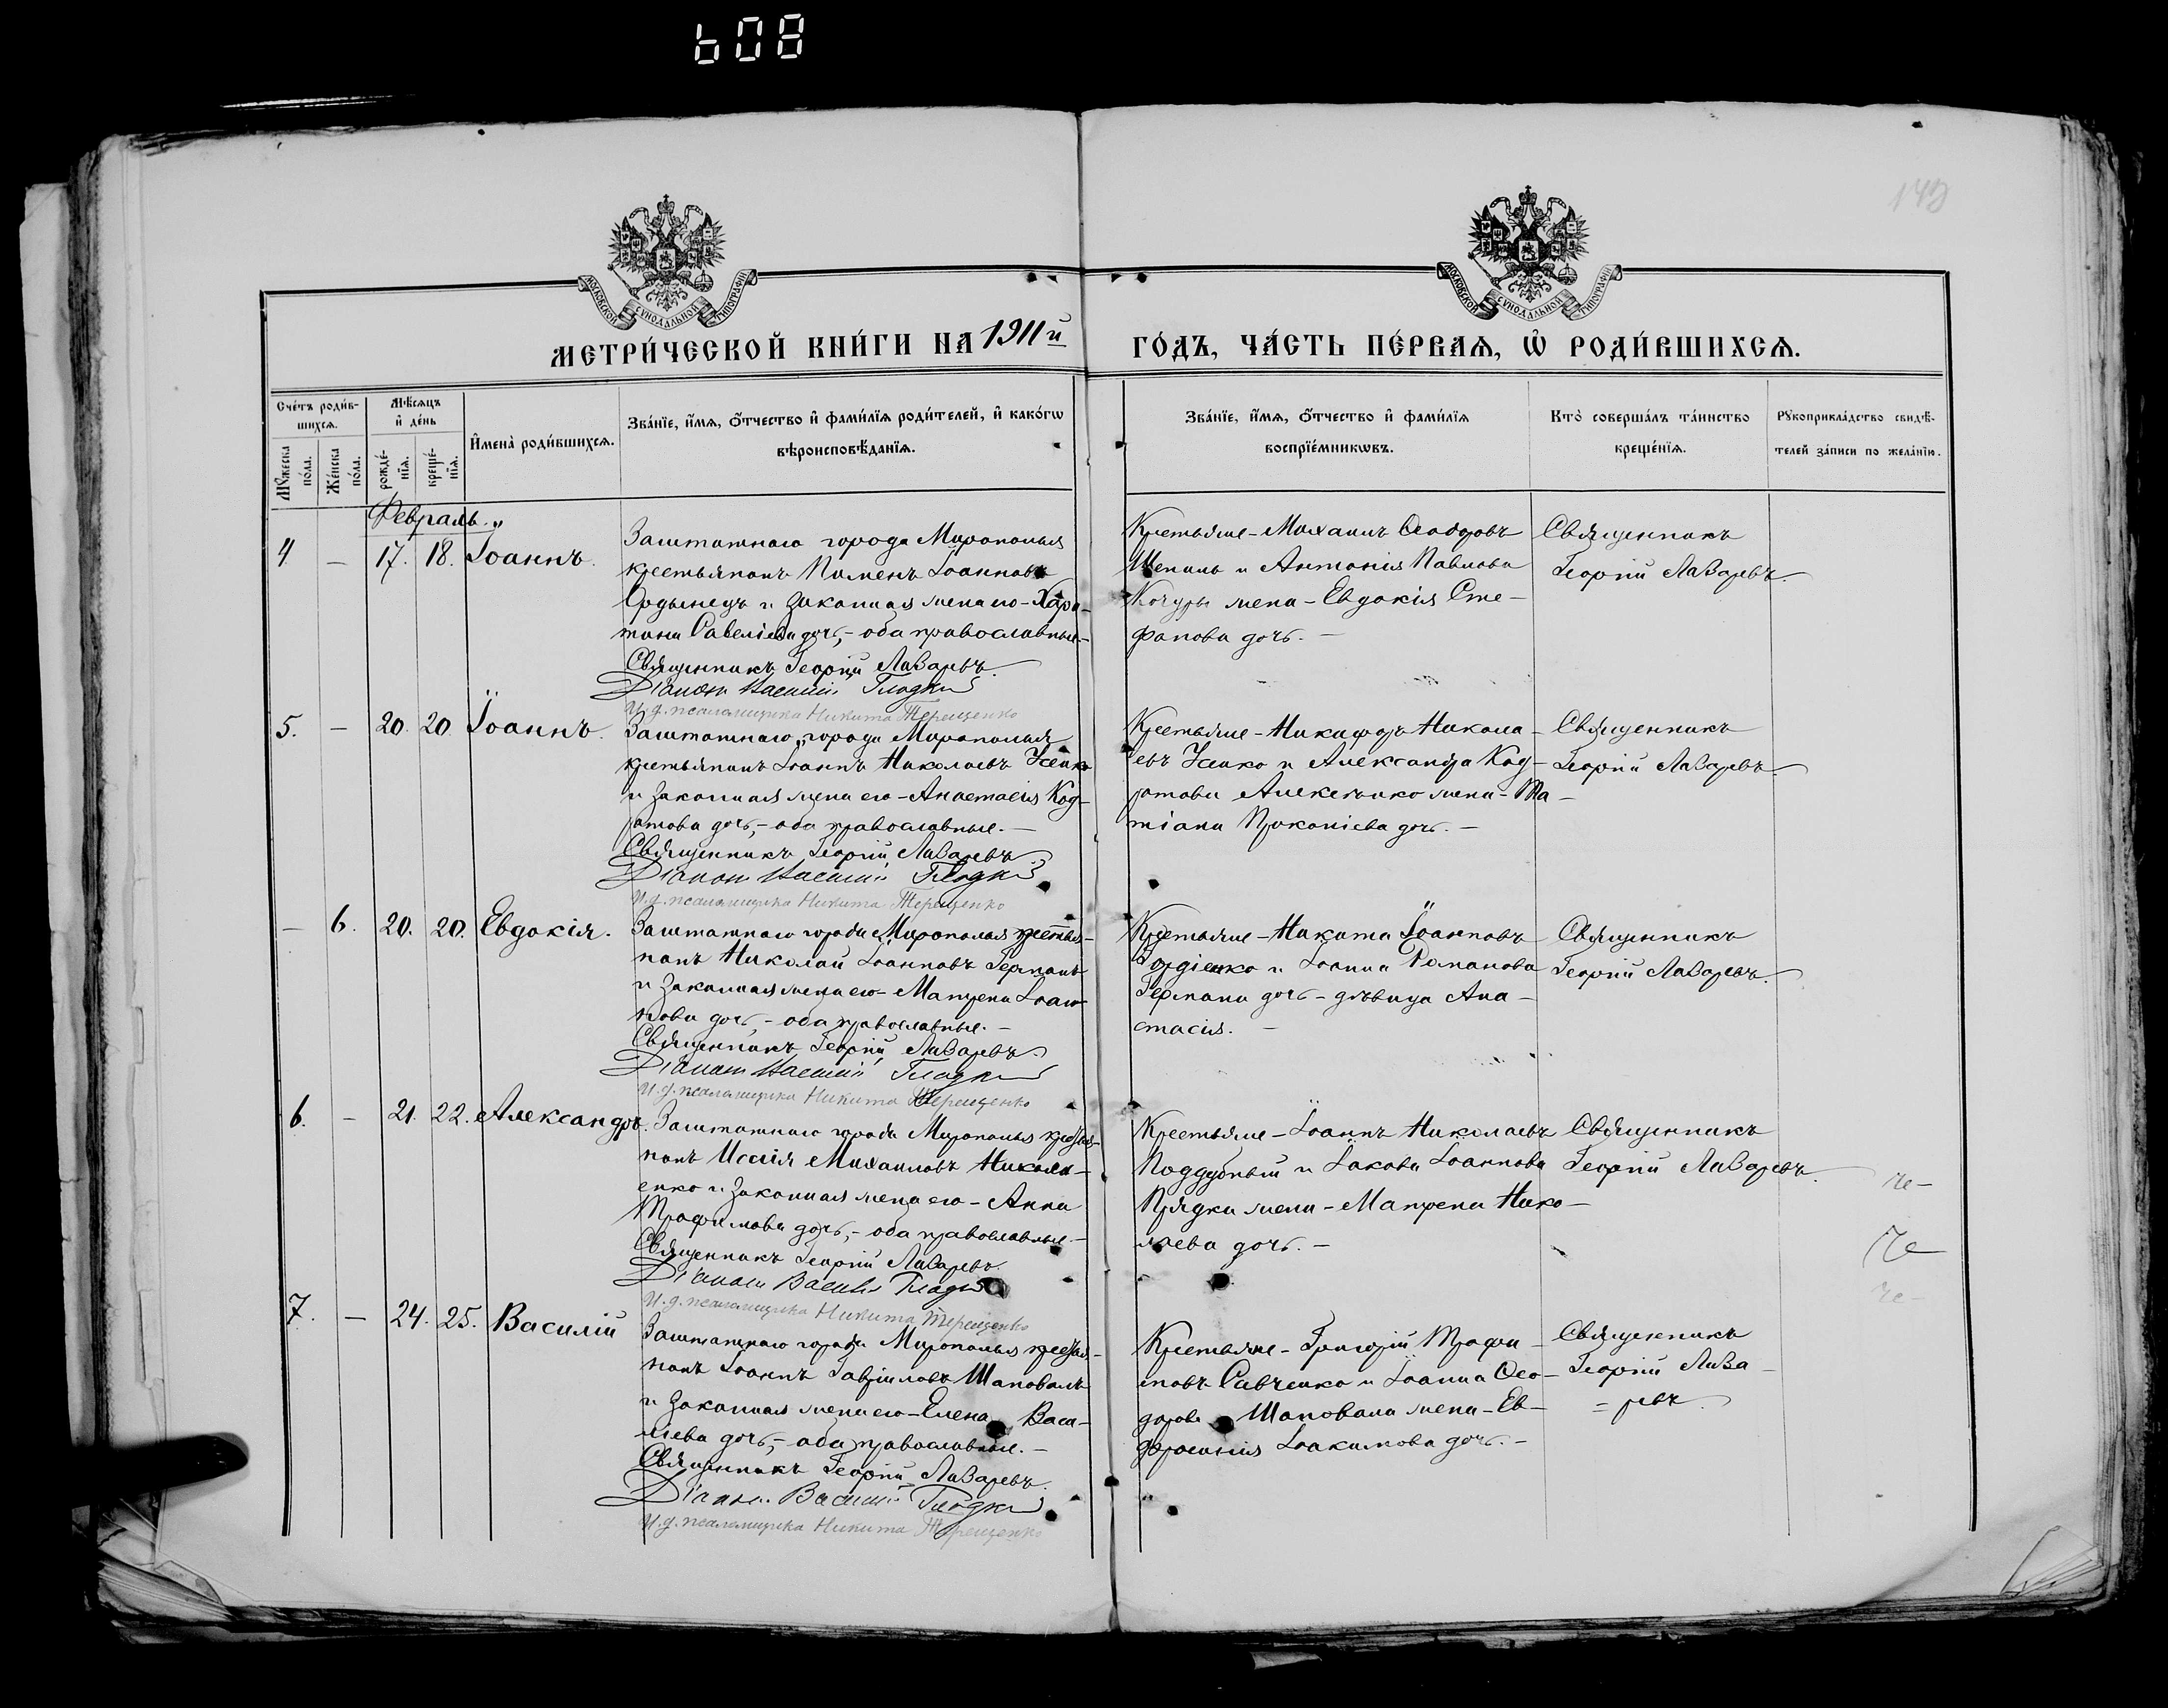 608
142
МОСКОВСКОЙ СѴНОДАЛЬНОЙ ТИПОГРАФІИ
МОСКОВСКОЙ СѴНОДАЛЬНОЙ ТИПОГРАФІИ
МЕТРИ́ЧЕСКОЙ КНИ́ГИ НА 1911й ГО́ДЪ, ЧА́СТЬ ПЕ́РВАѦ, Ѡ҆ РОДИ́ВШИХСѦ.
Сче́тъ роди́в-
шихсѧ.
Мꙋ́жеска по́ла.
Же́нска по́ла.
Мѣ́сѧцъ
и҆ де́нь
рожде́-
нїѧ.
креще́-
нїѧ.
И҆мена̀ роди́вшихсѧ.
Зва́нїе, и҆́мѧ, ѻ҆́тчество и҆ фами́лїѧ роди́телей, и҆ како́гѡ
вѣроисповѣ́данїѧ.
Зва́нїе, и҆́мѧ, ѻ҆́тчество и҆ фами́лїѧ
воспрїе́мникѡвъ.
Кто̀ соверша́лъ та́инство
креще́нїѧ.
Рꙋкоприкла́дство свидѣ́-
телей за́писи по жела́нїю.
Февраль.
4 — 17. 18. Іоаннъ.
Заштатнаго города Мирополья
крестьянинъ Пименъ Іоанновъ
Ордынецъ и законная жена его - Хари-
тина Савеліева дочь, - оба православные. -
Священникъ Георгій Лазаревъ.
Діаконъ Василій Гладкій
И. д. псаломщика Никита Терещенко
Крестьяне - Михаилъ Ѳеодоровъ
Шепиль и Антонія Павлова
Кочуры жена - Евдокія Сте-
фанова дочь. -
Священникъ
Георгій Лазаревъ.
5. — 20. 20. Іоаннъ.
Заштатнаго города Мирополья
крестьянинъ Іоаннъ Николаевъ Усенко
и законная жена его - Анастасія Код-
ратова дочь, - оба православные. -
Священникъ Георгій Лазаревъ.
Діаконъ Василій Гладкій
И. д. псаломщика Никита Терещенко
Крестьяне - Никифоръ Никола-
евъ Усенко и Александра Код-
ратова Алексенко жена - Та-
тіана Прокопіева дочь. -
Священникъ
Георгій Лазаревъ.
— 6. 20. 20. Евдокія.
Заштатнаго города Мирополья крестья-
нинъ Николай Іоанновъ Германъ
и законная жена его - Матрена Іоан-
нова дочь, - оба православные. -
Священникъ Георгій Лазаревъ.
Діаконъ Василій Гладкій
И. д. псаломщика Никита Терещенко
Крестьяне - Никита Іоанновъ
Гордіенко и Іоанна Романова
Германа дочь - дѣвица Ана-
стасія. -
Священникъ
Георгій Лазаревъ.
6. — 21. 22. Александръ.
Заштатнаго города Мирополья крестья-
нинъ Исаія Михаиловъ Никола-
енко и законная жена его - Анна
Трофимова дочь, - оба православные. -
Священникъ Георгій Лазаревъ.
Діаконъ Василій Гладкій
И. д. псаломщика Никита Терещенко
Крестьяне - Іоаннъ Николаевъ
Поддубный и Іакова Іоаннова
Прядки жена - Матрена Нико-
лаева дочь. -
Священникъ
Георгій Лазаревъ.
7. — 24. 25. Василій
Заштатнаго города Мирополья крестья-
нинъ Іоаннъ Гавріиловъ Шаповалъ
и законная жена его - Елена Васи-
лиева дочь, - оба православные. -
Священникъ Георгій Лазаревъ.
Діаконъ Василій Гладкій
И. д. псаломщика Никита Терещенко
Крестьяне - Григорій Трофи-
мовъ Савченко и Іоанна Ѳео-
дорова Шаповала жена - Ев-
фросинія Іоакимова дочь. -
Священникъ
Георгій Лаза-
= ревъ.